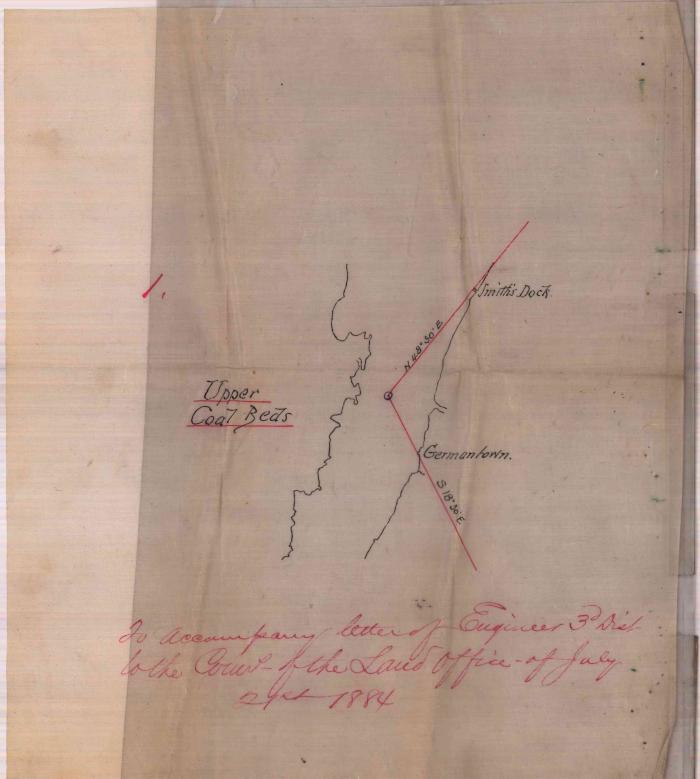 1.
Smith's Dock.
N 48° 30' E
Upper
Coal Beds
Germantown.
S 18° 30' E
To accompany letter of Engineer 3d Dist
to the Com'r of the Land Office of July
21st 1884